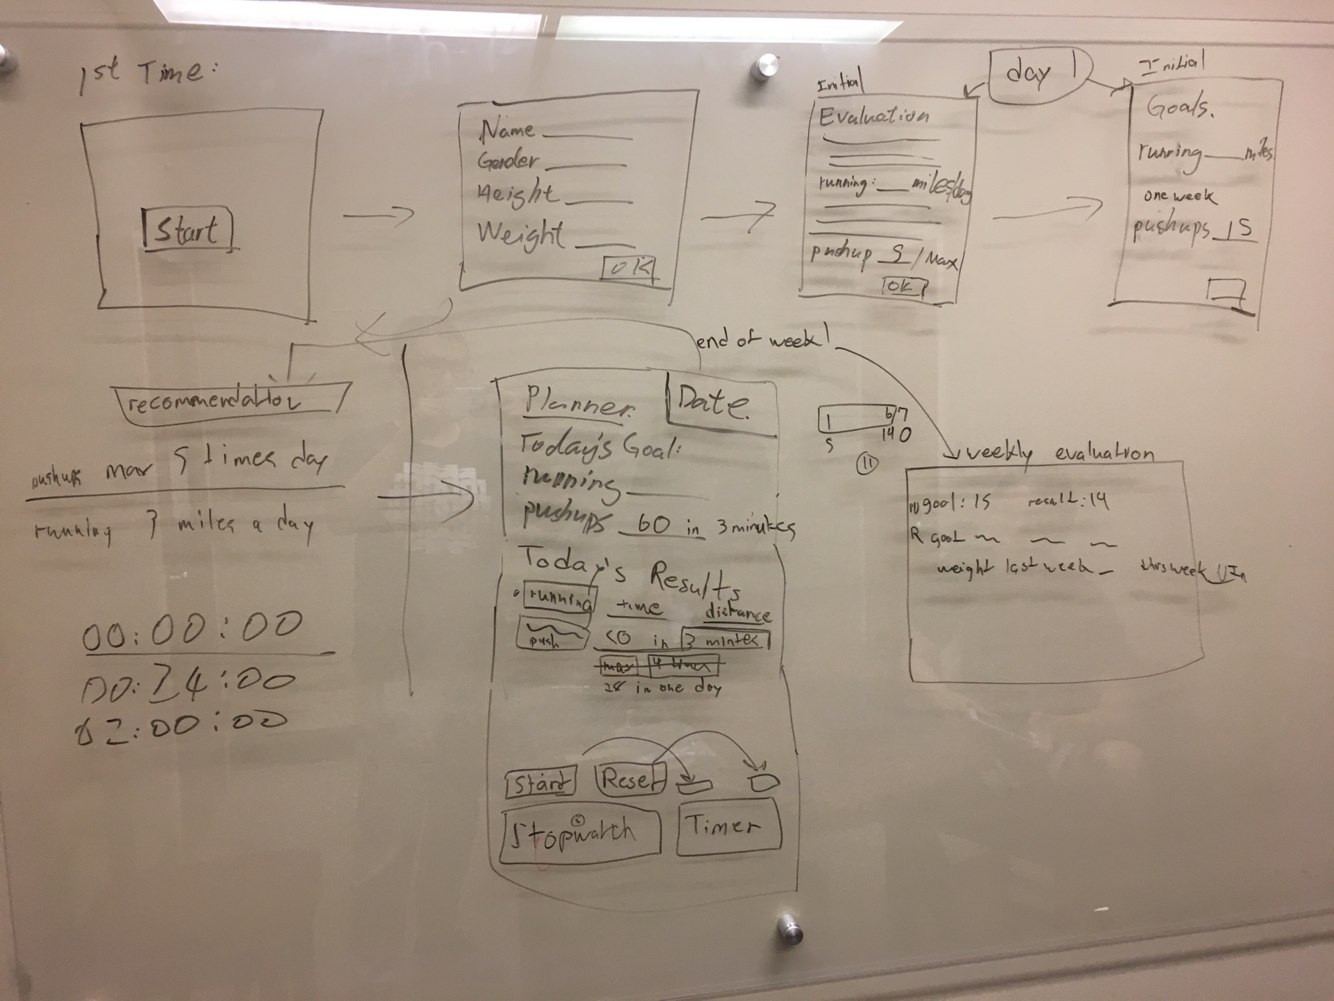 1st Time:
Start
Name
Gender
Height
Weight
OK
Initial
Evaluation
running: miles/day
pushup 5 / Max
OK
day 1
Initial
Goals.
running miles
one week
pushups 15
recommendation
pushups max 5 times day
running 3 miles a day
00:00:00
00:24:00
02:00:00
end of week!
Planner
Date.
Today's Goal:
running
pushups 60 in 3 minutes
Today's Results
running time distance
push 60 in 3 mintes
28 in one day
Start Reset
Stopwatch Timer
1 6/7
5 140
11
weekly evaluation
goal: 15 result: 14
R goal
weight last week this week